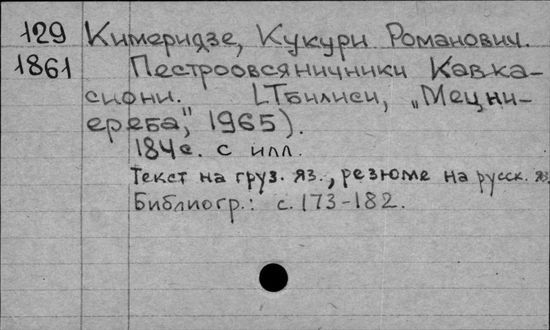 129 Кимеридзе, Кукури Романович.
1861 Пестроовсяничники Кавка-
сиони. [Тбилиси, „Мецни-
ереба", 1965).
184с. с илл.
Текст на груз. яз., резюме на русск. яз
Библиогр.: с.173-182.